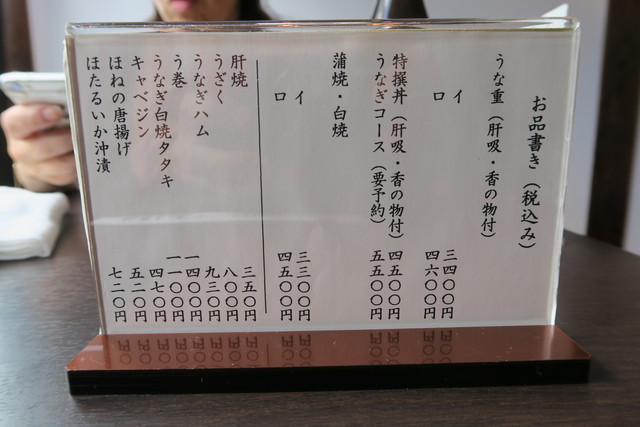 お品書き（税込み）
うな重（肝吸・香の物付）
イ 三四〇〇円
ロ 四六〇〇円
特撰丼（肝吸・香の物付） 四五〇〇円
うなぎコース（要予約） 五五〇〇円
蒲焼・白焼
イ 三三〇〇円
ロ 四五〇〇円
肝焼 三五〇円
うざく 八〇〇円
うなぎハム 九三〇円
う巻 一四〇〇円
うなぎ白焼タタキ 一一〇〇円
キャベジン 四七〇円
ほねの唐揚げ 五二〇円
ほたるいか沖漬 七二〇円